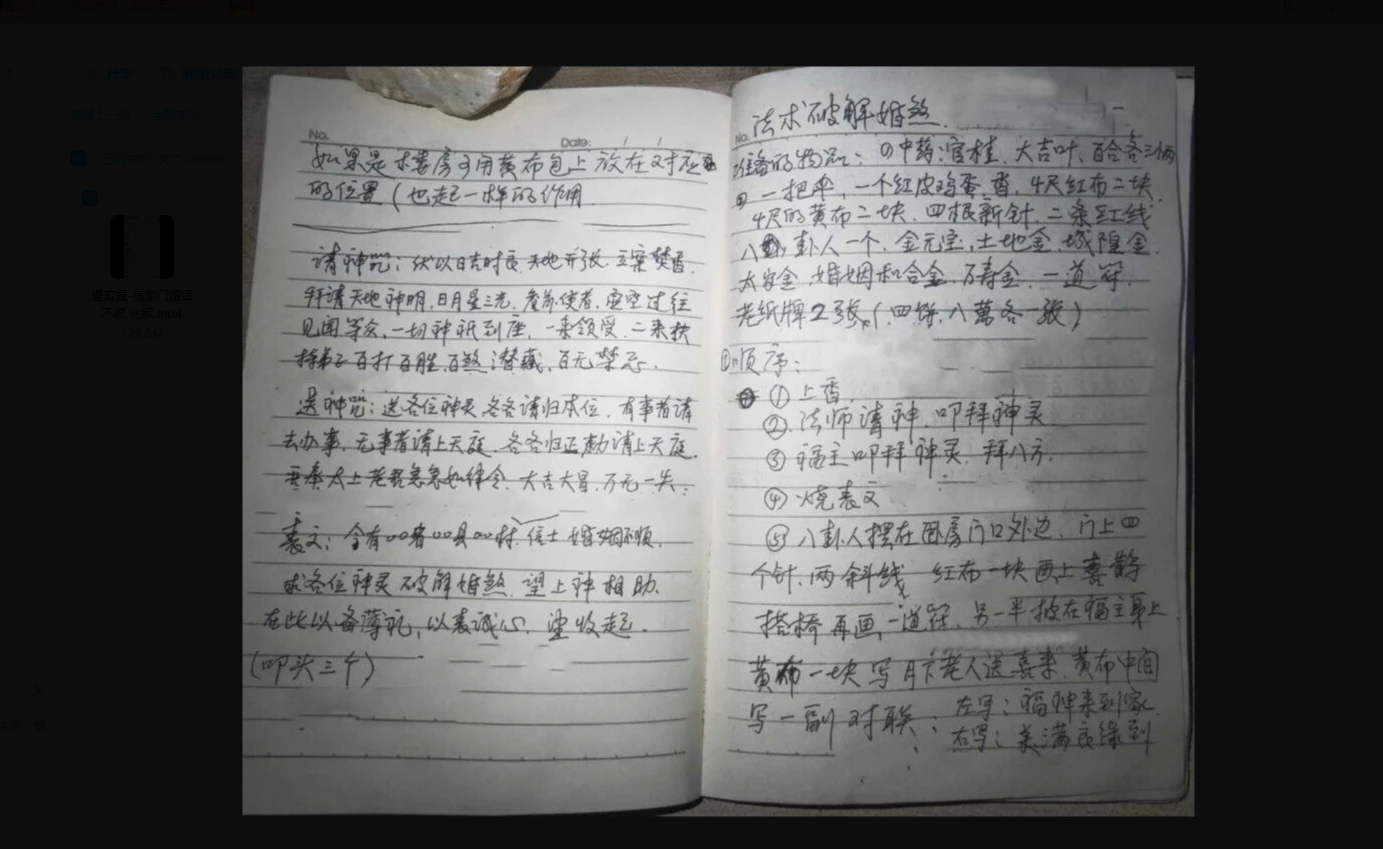 No.
Date:
如果是楼房可用黄布包上放在对应
的位置(也起一样的作用
请神咒:伏以日吉时良,天地开张,立案焚香,
拜请天地神明,日月星三光,虚空过往
见闻等众,一切神祇到座,一来领受,二来扶
持弟子百打百胜,百煞潜藏,百无禁忌.
送神咒:送各位神灵各各请归本位,有事者请
去办事,无事者请上天庭.各各归正,请上天庭.
吾奉太上老君急急如律令.大吉大昌,万无一失;
表文:今有○○省○○县○○村,信士婚姻不顺,
求各位神灵破解婚煞,望上神相助.
在此以备薄礼,以表诚心,望收起.
(叩头三个)
法术破解婚煞
No.
准备的物品:中药:官桂,大吉叶,百合各三两
一把伞,一个红皮鸡蛋,香,4尺红布二块
4尺的黄布二块.四根新针,二条红线
八卦人一个.金元宝,土地金,城隍金
太岁金,婚姻和合金,万寿金,一道符.
老纸牌2张,(四饼,八萬各一张)
①顺序:
①上香.
②法师请神.叩拜神灵
③福主叩拜神灵.拜八方.
④烧表文
⑤八卦人摆在卧房门口外边,门上四
个针,两斜线,红布一块画上喜鹊
搭桥再画一道符.另一半披在福主身上
黄布一块写月下老人送喜来.黄布中间
写一副对联: 左写:福神来到家
右写:美满良缘到